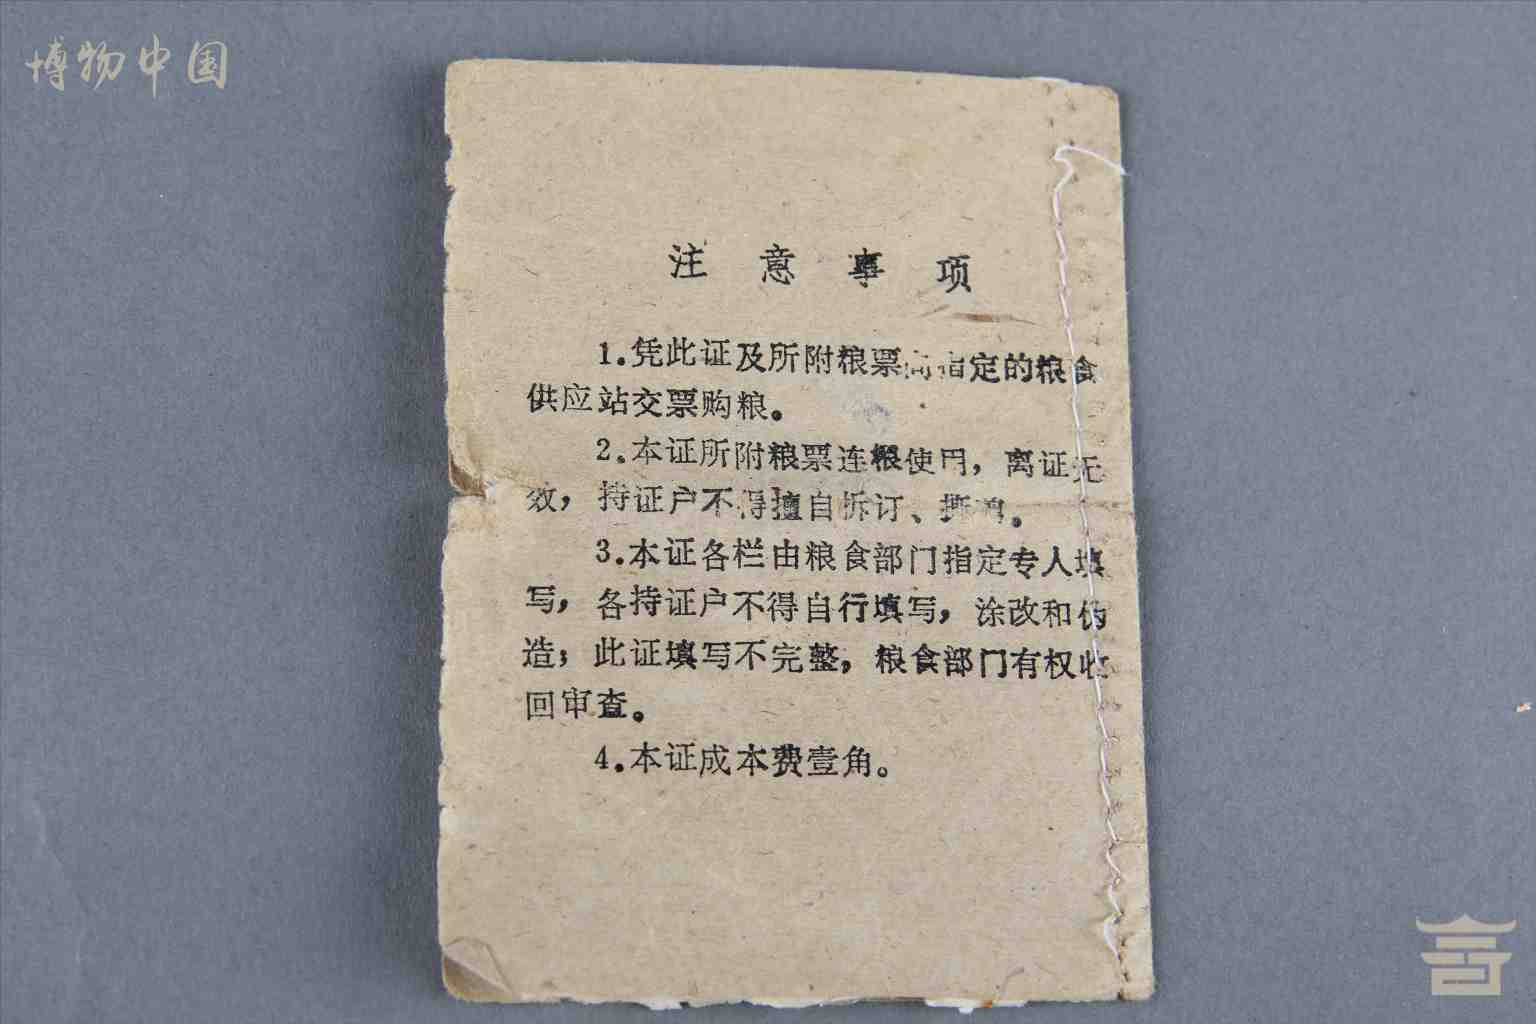 博物中国
注意事项
1.凭此证及所附粮票向指定的粮食
供应站交票购粮。
2.本证所附粮票连根使用，离证无
效，持证户不得擅自拆订、撕。
3.本证各栏由粮食部门指定专人填
写，各持证户不得自行填写，涂改和伪
造；此证填写不完整，粮食部门有权收
回审查。
4.本证成本费壹角。